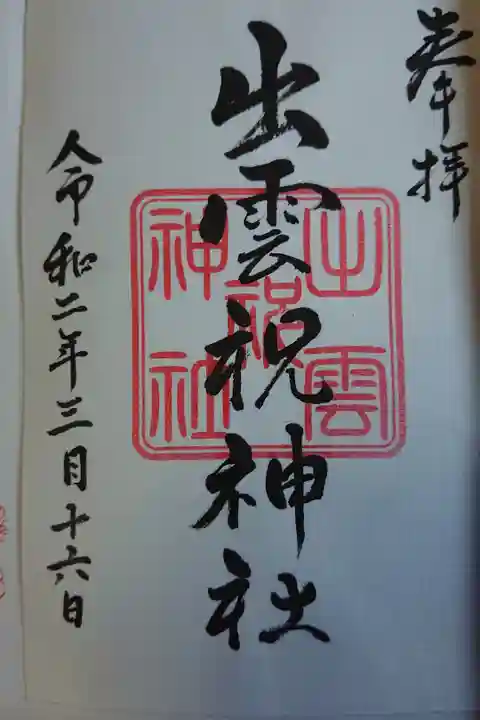 奉拝
出雲祝神社
出雲
祝
神社
令和二年三月十六日